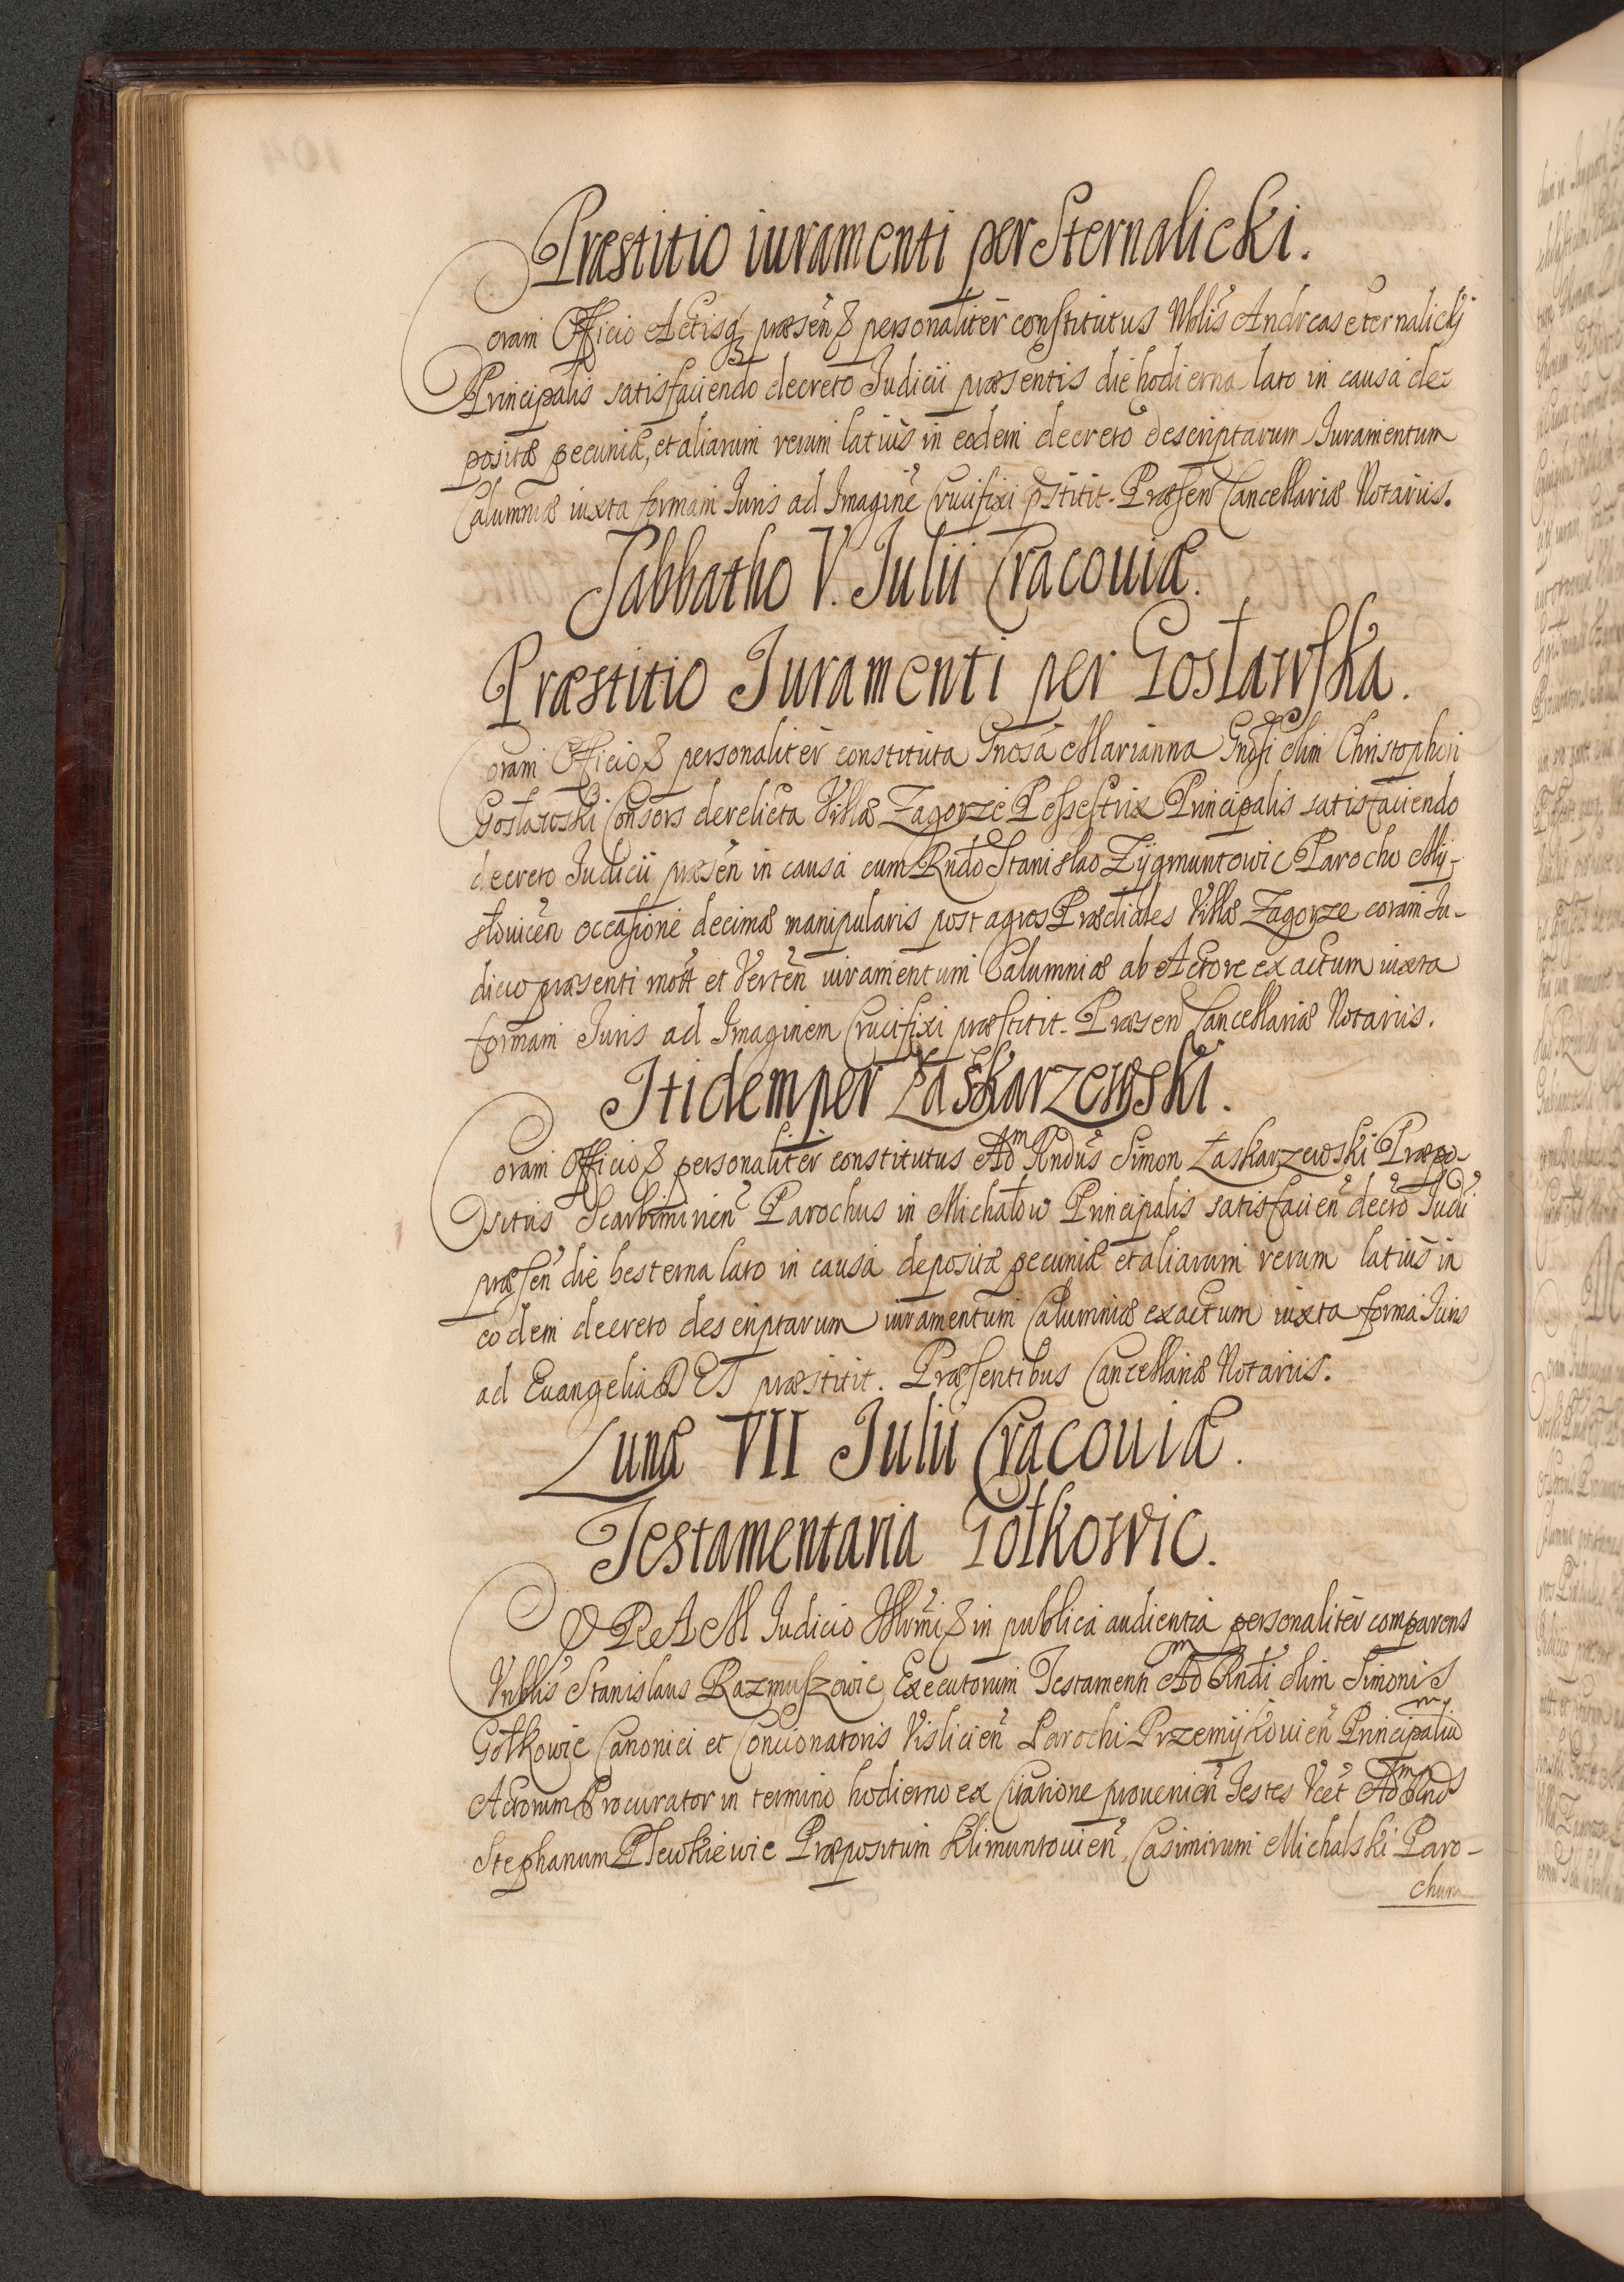 Præstitio iuramenti per Sternalicki.
Coram Officio Actisq3 præsen̄ & personalitèr constitutus Nblis Andreas Sternalickj
Principalis satisfaciendo decreto Judicii præsentis die hodierna lato in causa de-
positæ pecuniæ, et aliarum rerum latiùs in eodem decreto descriptarum Juramentum
Calumniæ iuxta formam Juris ad Imaginē Crucifixi pstitit. Præsen Cancellariæ Notariis.
Sabbatho V. Julii Cracouiæ.
Præstitio Juramenti per Gosławska.
Coram Officio & personalitèr constituta Gnosa Marianna Gnosi olim Christophori
Gosławski Consors derelicta Villæ Zagorze Possestrix Principalis satisfaciendo
decreto Judicii præsen̄ in causa cum Rndo Stanislao Zygmuntowic Parocho My-
słouicen̄ occasione decimæ manipularis post agros Prædiales Villæ Zagorze coram Ju-
dicio præsenti mott et Verten̄ iuramentum Calumniæ ab Actore exactum iuxta
formam Juris ad Imaginem Crucifixi præstitit. Præsen Cancellariæ Notariis.
Itidem per Łaskarzewski.
Coram Officio & personalitèr constitutus Adm Rndus Simon Łaskarzewski Præpo-
situs Scarbimirien̄ Parochus in Michałow Principalis satisfacien̄ decro Judi
præsen̄ die hesterna lato in causa depositæ pecuniæ et aliarum rerum latiùs in
eodem decreto descriptarum iuramentum Calumniæ exactum iuxta forma Juris
ad Euangelia DEI præstitit. Præsentibus Cancellariæ Notariis.
Lunæ VII Julii Cracouiæ.
Testamentaria Gołkowic.
CORAM Judicio Illvmi & in publica audientia personalitèr comparens
Nblis Stanislaus Razmuszowic Executorum Testamenti Adm Rndi olim Simonis
Gołkowic Canonici et Concionatoris Vislicien̄ Parochi Przemijkouien̄ Principaliu
Actorum Procurator in termino hodierno ex Citatione prouenien̄ Testes Vcet Adm Rnds
Stephanum Plewkiewic Præpositum Klimuntouien̄, Casimirum Michalski Paro-
chum